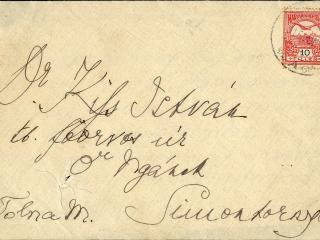 10
Dr Kiss István
tb. főorvos úr
Őr Ngának
Tolna M.
Simontornya